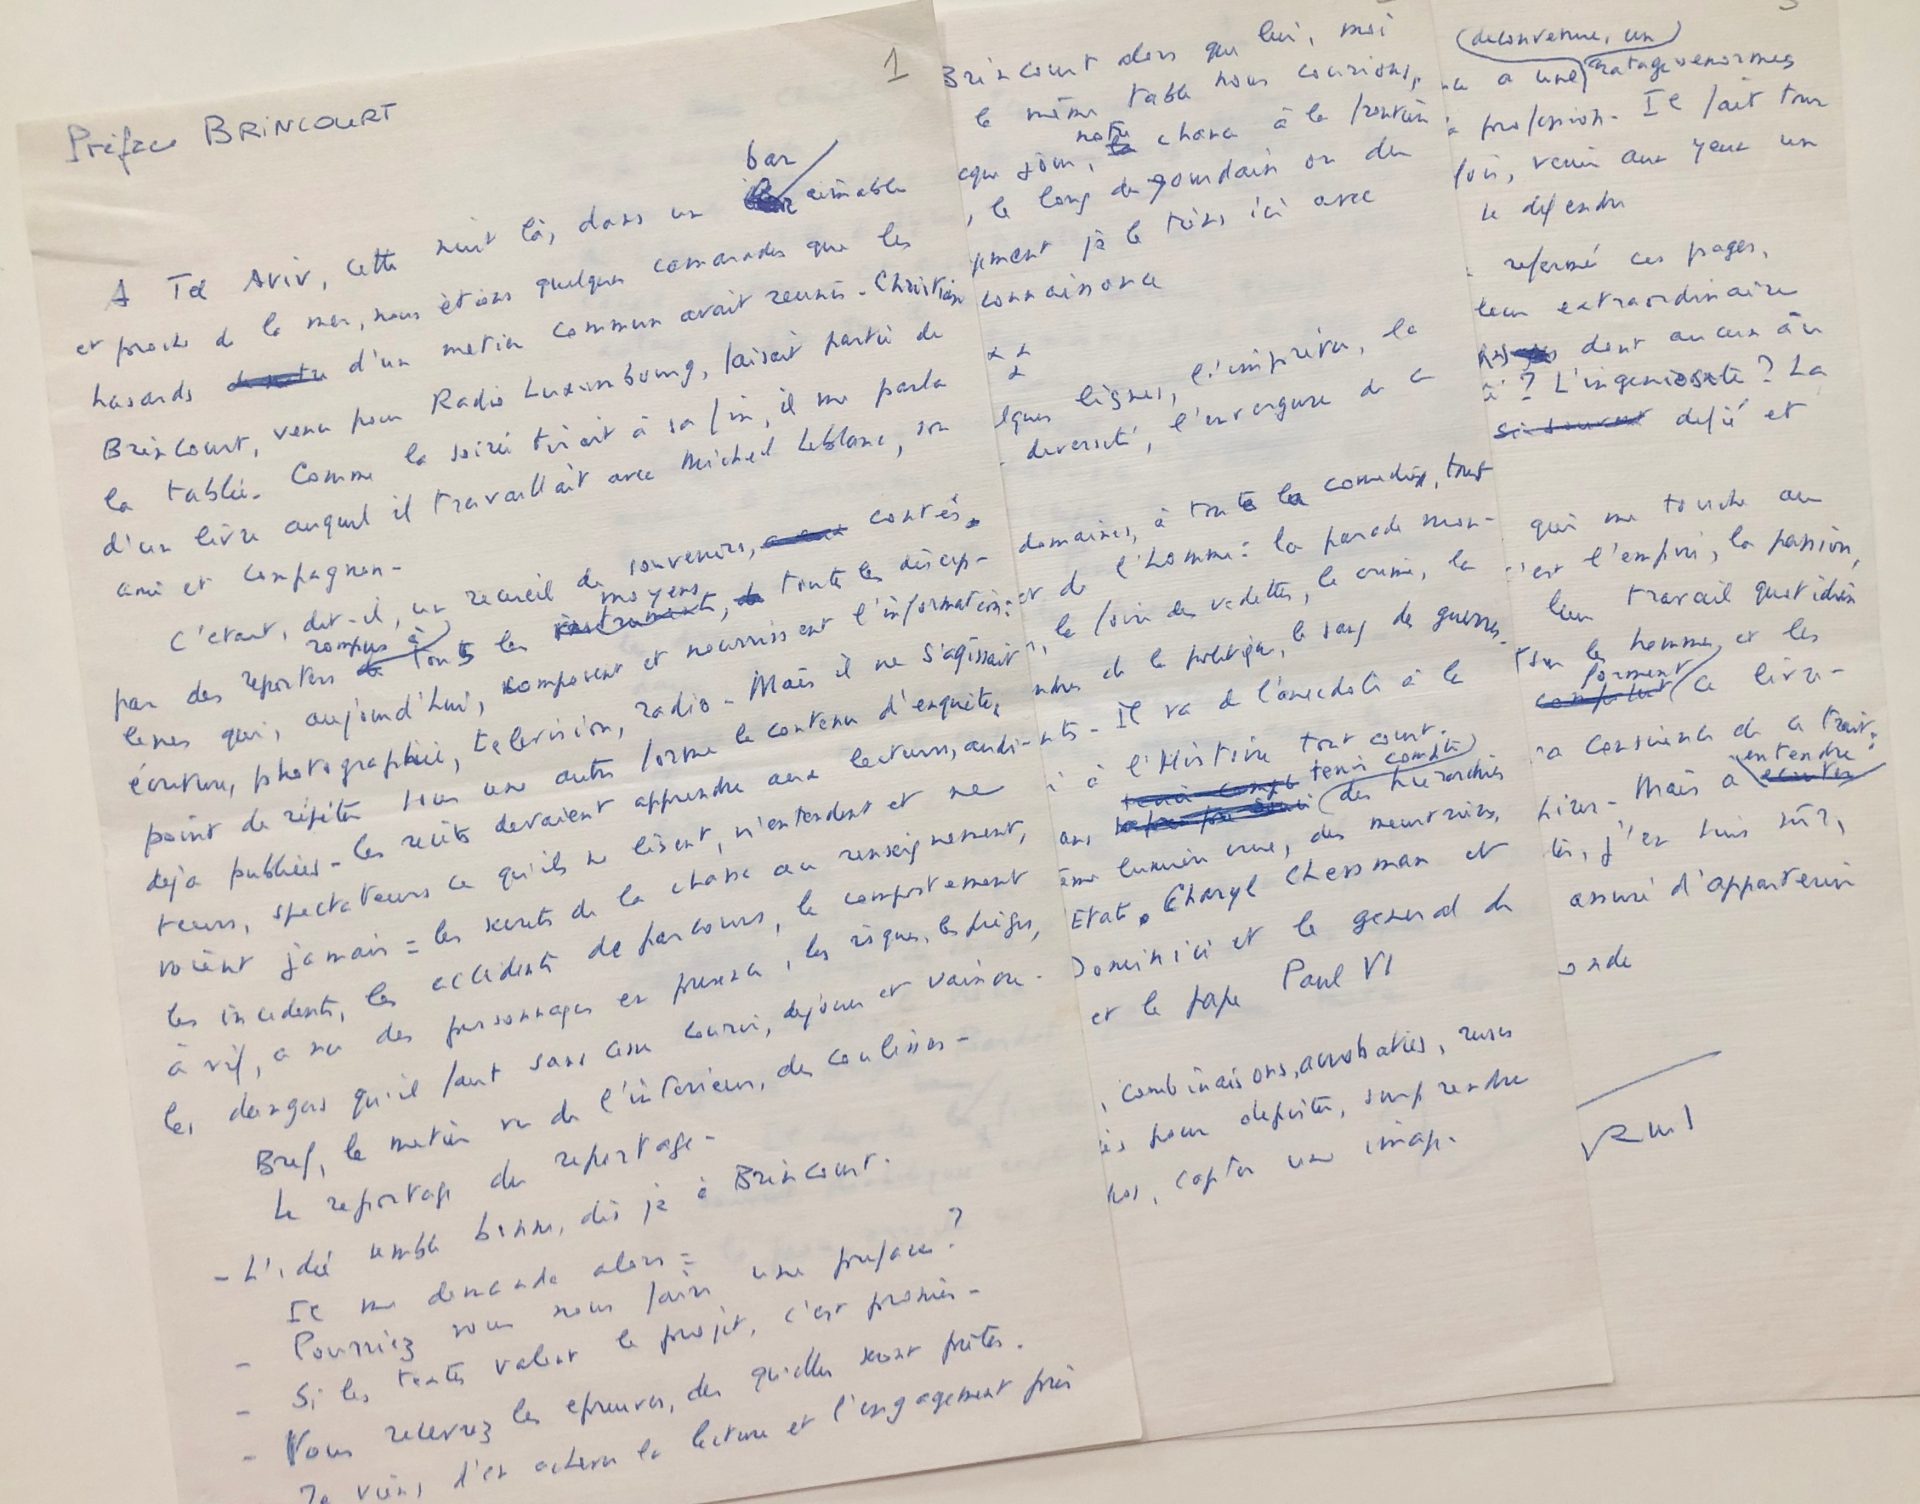 1
Préface BRINCOURT
bar
A Tel Aviv, cette nuit là, dans un aimable
et proche de la mer, nous étions quelques camarades que les
hasards d'un métier commun avait reunis - Christian
Brincourt, venu pour Radio Luxembourg, faisait partie de
la tablée. Comme la soirée tirait à sa fin, il me parla
d'un livre auquel il travaillait avec Michel Leblanc, son
ami et compagnon -
C'était, dit-il, un recueil de souvenirs, contés
rompus à moyens
par des reporters tous les instruments, de toute les discip-
lines qui, aujourd'hui, composent et nourrissent l'information :
écriture, photographie, télévision, radio - Mais il ne s'agissait
point de répéter sous une autre forme le contenu d'enquêtes
déjà publiées - Les récits devaient apprendre aux lecteurs, audi-
teurs, spectateurs ce qu'ils ne lisent, n'entendent et ne
voient jamais = les secrets de la chasse au renseignement,
les incidents, les accidents de parcours, le comportement
à vif, à nu des personnages en présence, les risques, les pièges,
les dangers qu'il faut sans cesse courir, déjouer et vaincre -
Bref, le métier vu de l'intérieur, des coulisses -
Le reportage du reportage -
- L'idée semble bonne, dis je à Brincourt.
Il me demande alors =
- Pourriez vous nous faire une préface ?
- Si les textes valent le projet, c'est promis -
- Vous recevrez les épreuves, dès qu'elles seront prêtes.
Je viens d'en achever la lecture et l'engagement pris
Brincourt alors que lui, moi
le même table nous courions,
notre
jour, chance à la frontière
, le long du Jourdain ou du
je le tiens ici avec
connaissance
x x
x
lignes, l'imprévu, la
diversité, l'envergure de ce
domaines, à toute la comédie, tout
et de l'homme : la parade mon-
, la foire des vedettes, le crime, la
de la politique, le sang des guerres.
Il va de l'anecdote à la
à l'Histoire tout court.
tenu compte tenir compte
des hiérarchies
lumière crue, des meurtriers,
Etat. Charyl Chessman et
Dominici et le général de
et le pape Paul VI
, combinaisons, acrobaties, ruses
pour dépister, surprendre
, capter une image.
3
deconvenue, un
a une ratage enormes
profession - Il fait tour
, venir aux yeux un
le défendre
refermé ces pages,
leur extraordinaire
dont aucun an
? L'ingeniosite ? La
si souvent défié et
qui me touche au
c'est l'emprise, la passion,
leur travail quotidien
sur les hommes et les
forment
ce livre -
conscience de ce
entendre
- Mais à écouter
j'en suis sûr,
assuré d'appartenir